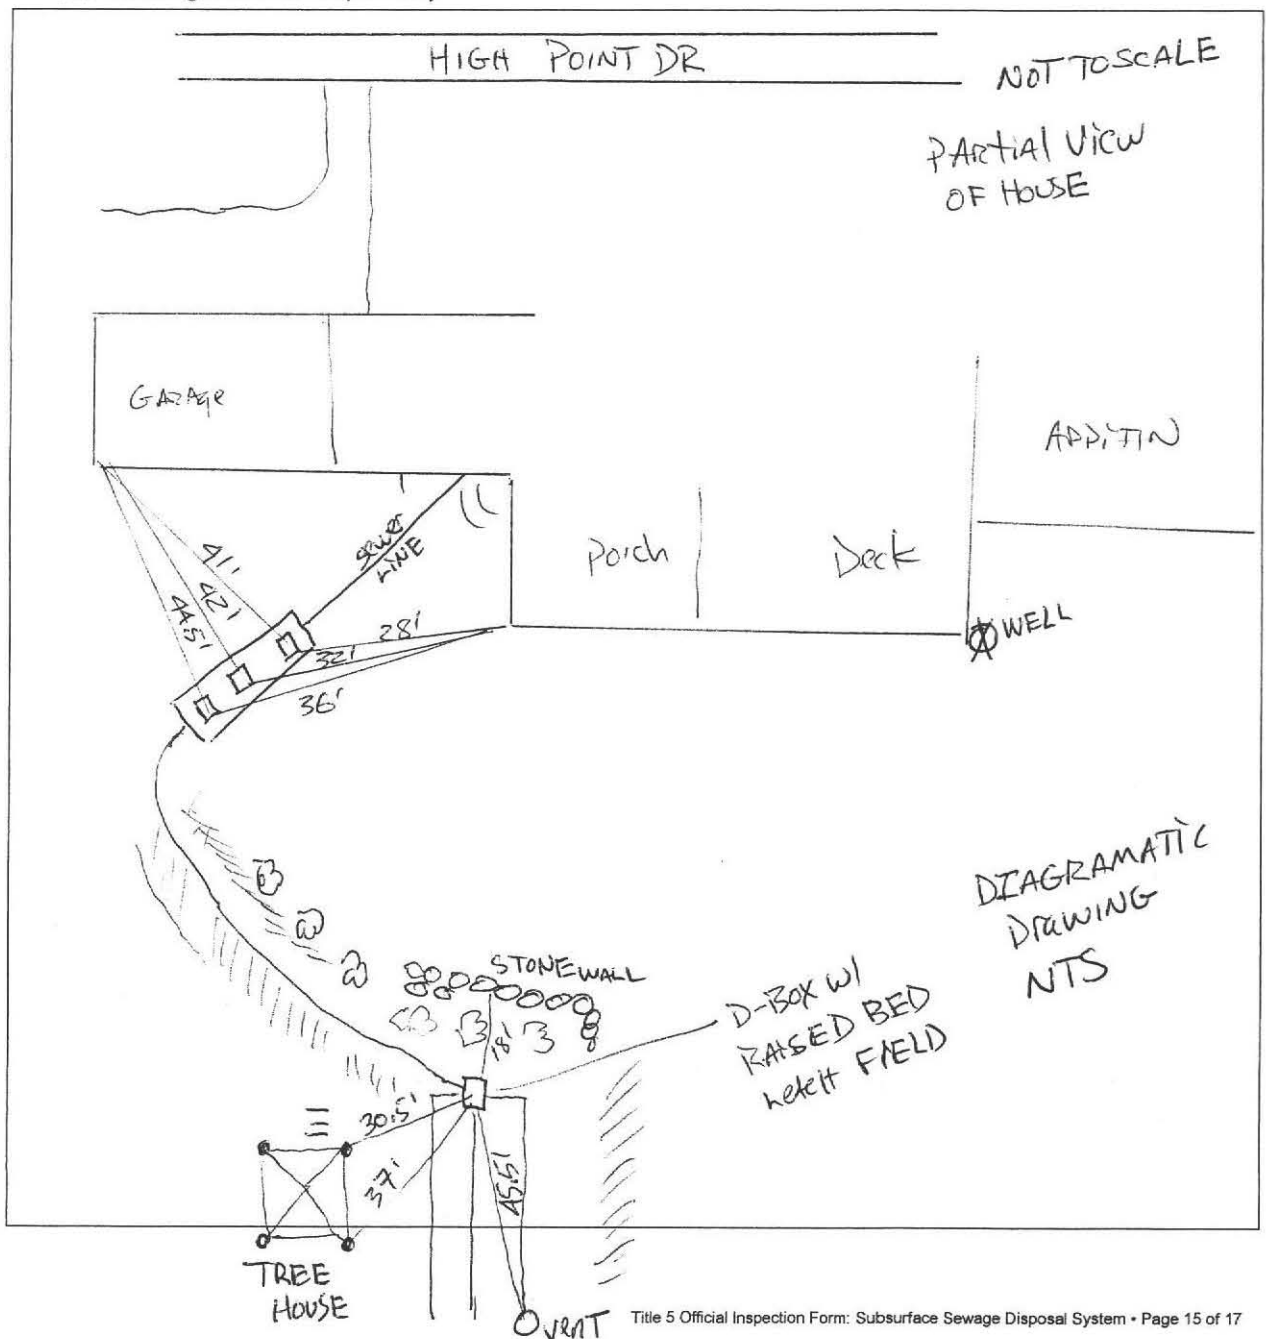 HIGH POINT DR
NOT TO SCALE
PARTIAL VIEW
OF HOUSE
GARAGE
ADDITIN
Sewer
LINE
Porch
Deck
WELL
41'
42'
44.5'
28'
32'
36'
DIAGRAMATIC
Drawing
NTS
STONE WALL
18'
D-BOX W/
RAISED BED
FIELD
30.5'
37'
45.5'
TREE
HOUSE
VENT
Title 5 Official Inspection Form: Subsurface Sewage Disposal System • Page 15 of 17